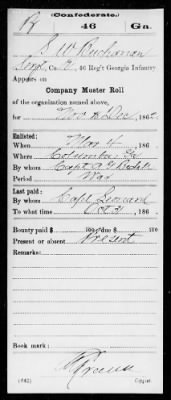 (Confederate.)
B 46 Ga.
S W Buchanan
Serg, Co. E, 46 Reg't Georgia Infantry.
Company Muster Roll
of the organization named above,
for Nov & Dec, 186
Enlisted:
When Mar 4, 186
Where Columbus Ga
By whom Capt
Period War
Last paid:
By whom Capt Leonard
To what time Oct 31, 186
Bounty paid $ 100; due $ 100
Present or absent Present
Remarks:
Book mark:
(642) Copyist.